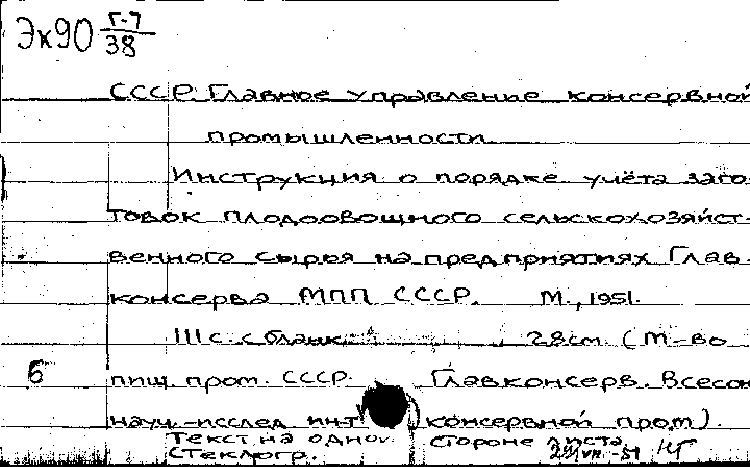 Эк90 Г-7
38
СССР. Главное управление консервной
промышленности
Инструкция о порядке учёта заго-
товок плодоовощного сельскохозяйст-
венного сырья на предприятиях Глав-
консерва МПП СССР. М., 1951.
111 с. с бланк. 28 см. (М-во
Б пищ. пром. СССР. Главконсерв. Всесоюз
науч.-исслед. инт консервной пром).
Текст на одной стороне листа
Стеклогр.